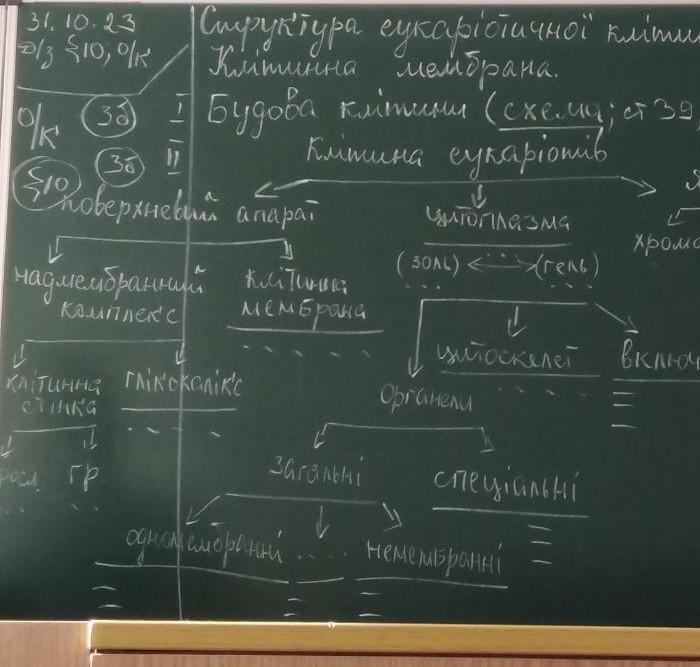 31.10.23
д/з §10, о/к
Структура еукаріотичної клітин
Клітинна мембрана.
Будова клітини (схема; ст 39
о/к 3б I
3б II
§10
Клітина еукаріотів
Я
поверхневий апарат
цитоплазма
хромо
(золь) (гель)
надмембранний комплекс
клітинна мембрана
цитоскелет
включ
клітинна стінка
глікокалікс
органели
росл гр
загальні
спеціальні
одномембранні .... немембранні